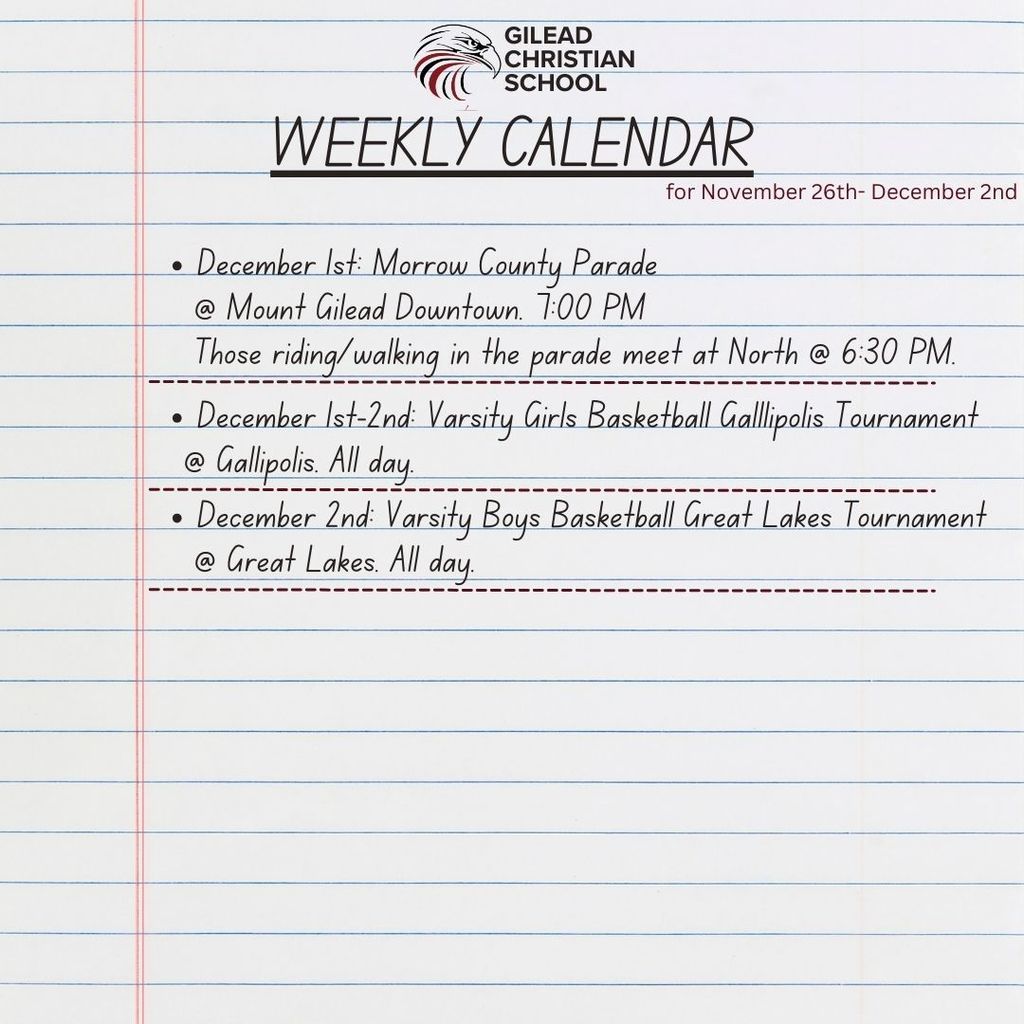 GILEAD
CHRISTIAN
SCHOOL
WEEKLY CALENDAR
for November 26th- December 2nd
• December 1st: Morrow County Parade
@ Mount Gilead Downtown. 7:00 PM
Those riding/walking in the parade meet at North @ 6:30 PM.
• December 1st-2nd: Varsity Girls Basketball Galllipolis Tournament
@ Gallipolis. All day.
• December 2nd: Varsity Boys Basketball Great Lakes Tournament
@ Great Lakes. All day.